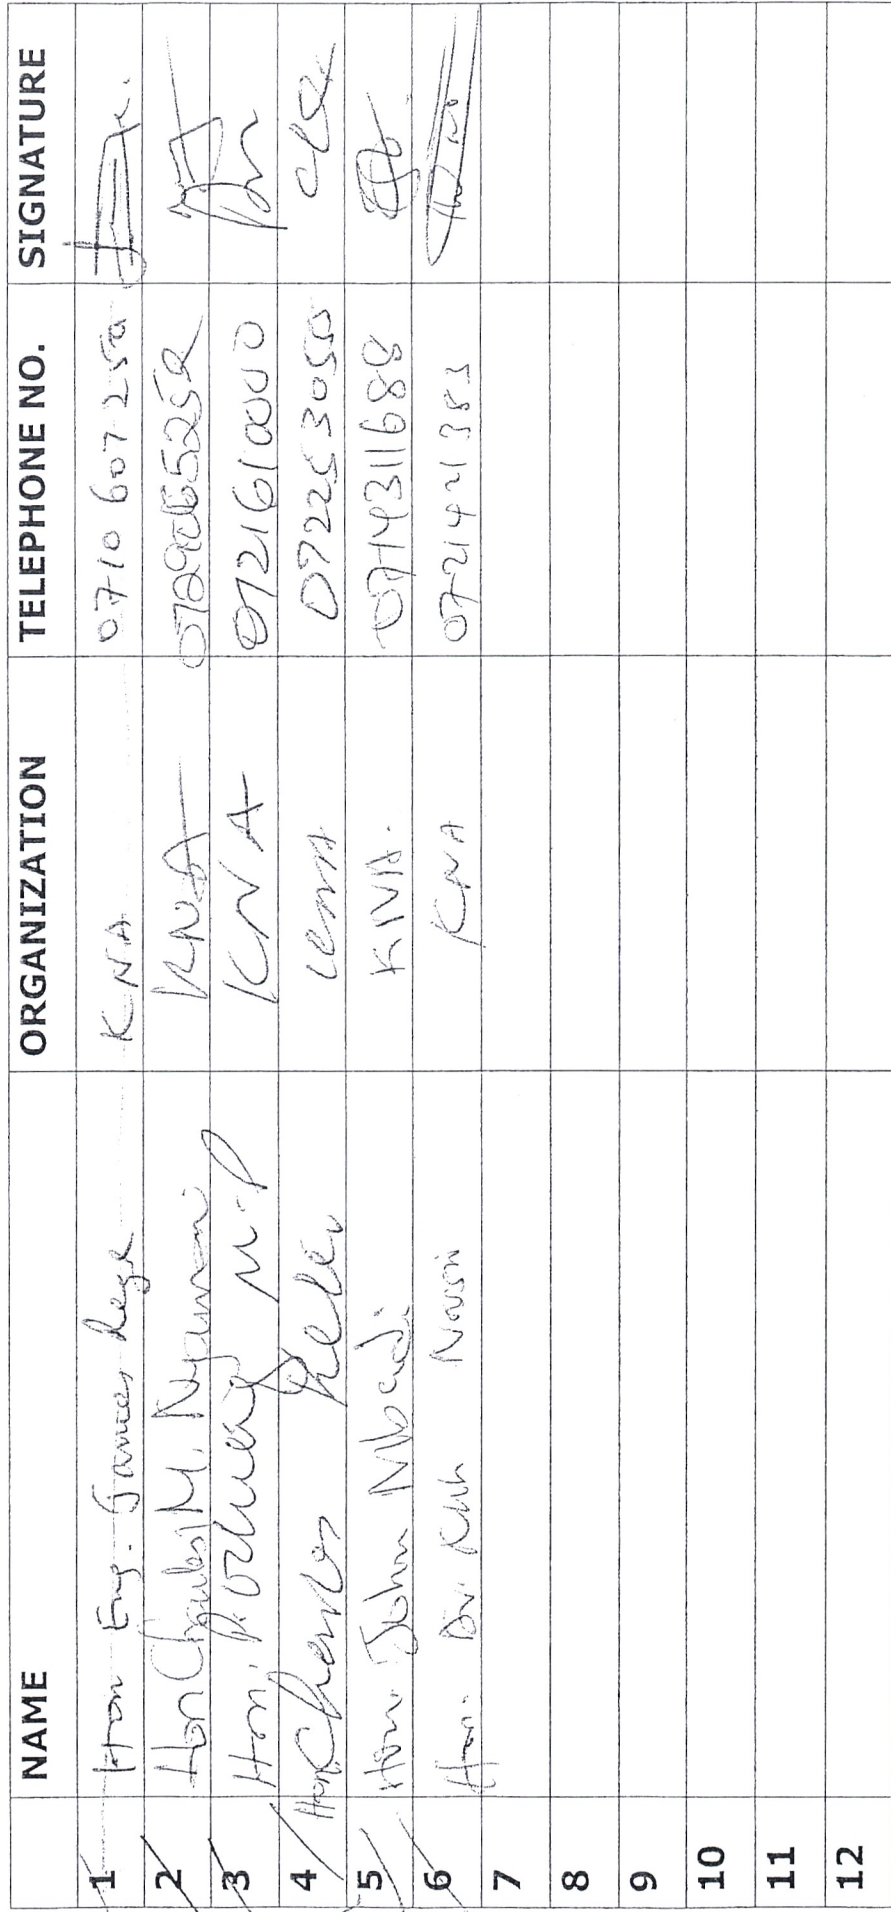 NAME ORGANIZATION TELEPHONE NO. SIGNATURE
1 Hon Eng. James Rege KNA 0710 607 250
2 Hon Charles M. Nyamai KNA
3 Hon. M.P KNA 0721610000
4 Hon Charles 0722253050
5 Hon. John Mbadi KNA. 0714311688
6 Hon. Dr. KNA 0721421383
7
8
9
10
11
12